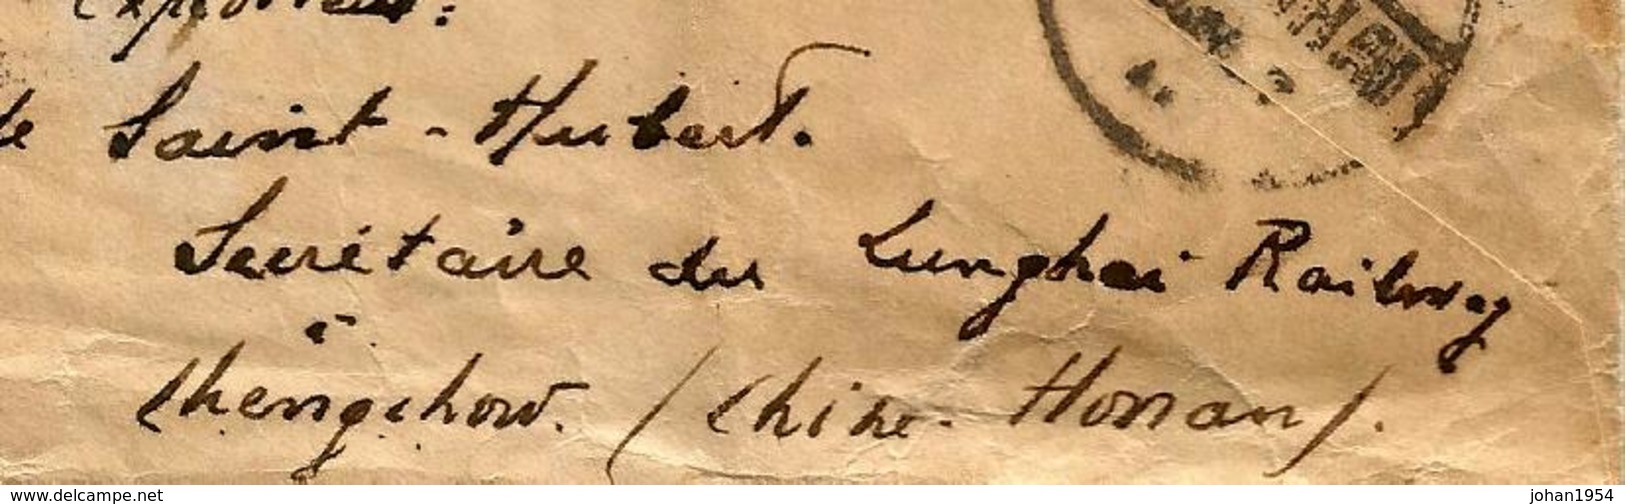 Expéditeur:
de Saint-Hubert.
Secrétaire du Lunghai Railway
à
Chengchow. (Chine. Honan).
www.delcampe.net
johan1954